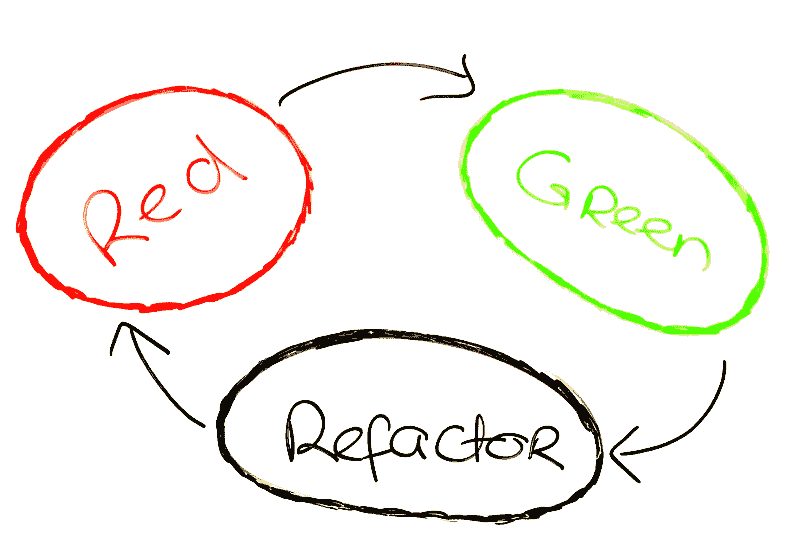 Red
Green
Refactor